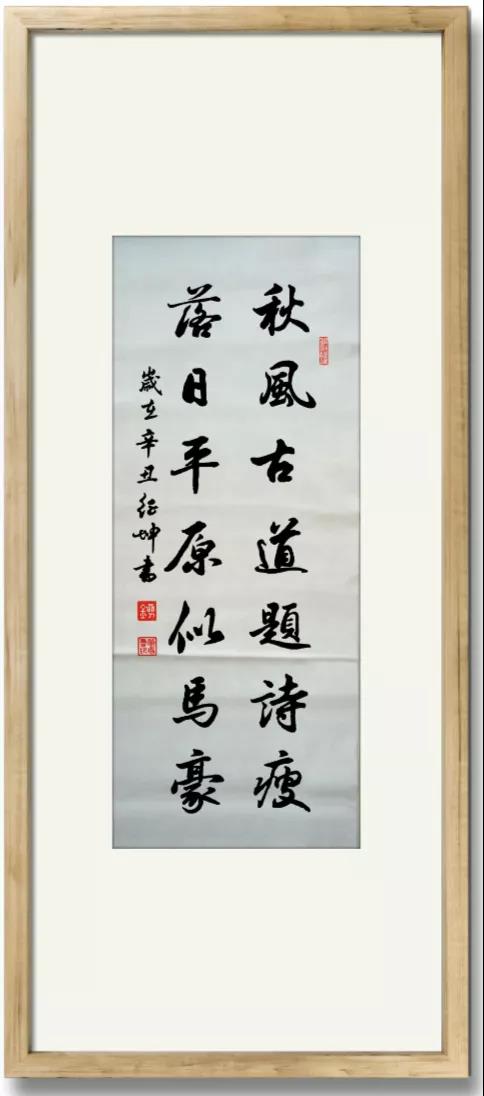 秋風古道題詩瘦
落日平原似馬豪
歲在辛丑征坤書